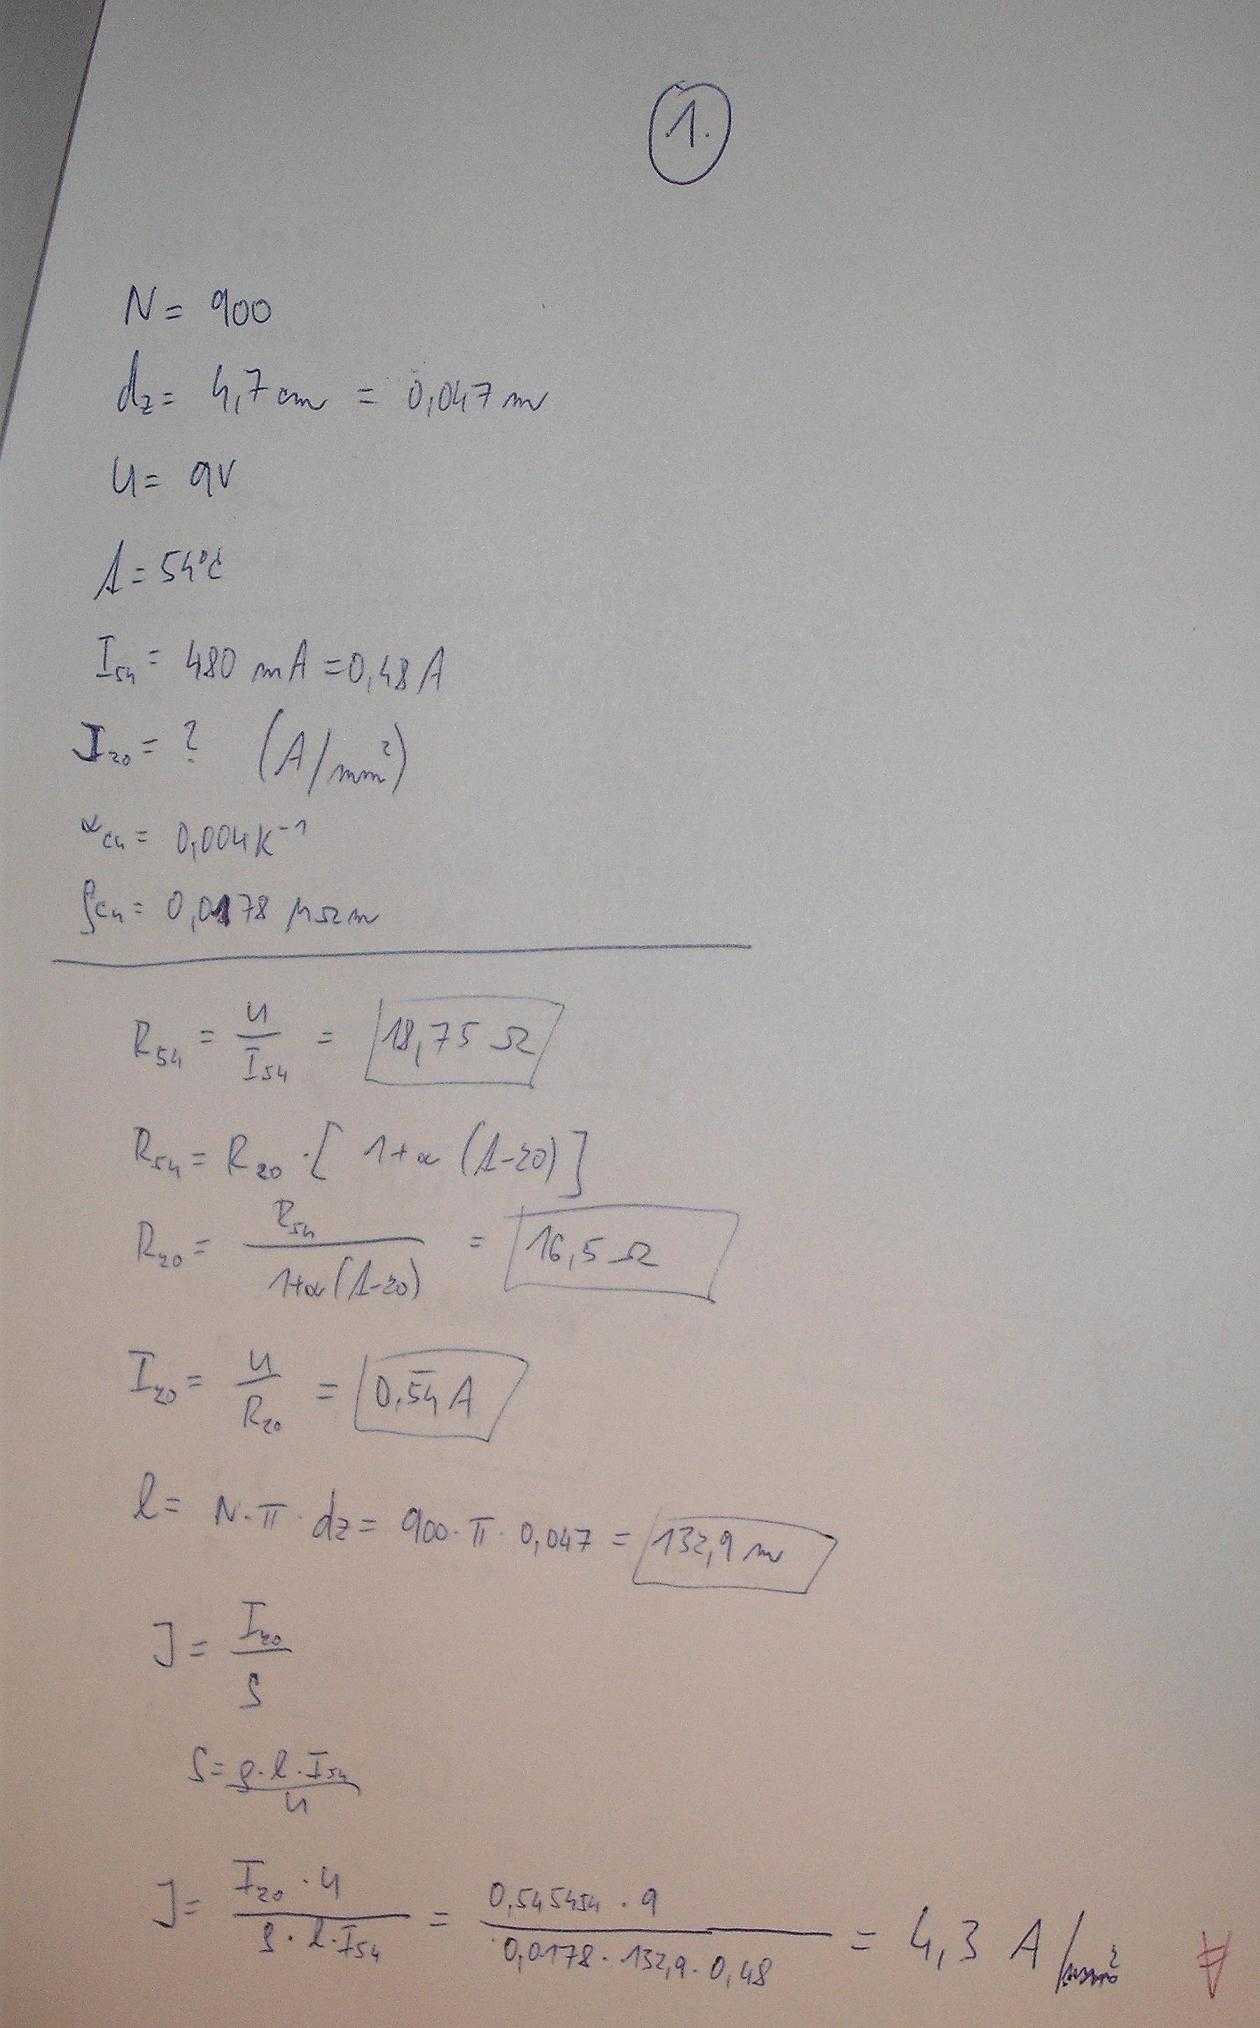 1.
N = 900
dz = 4,7 cm = 0,047 m
U = 9V
ϑ = 54°C
I54 = 480 mA = 0,48 A
J20 = ? (A/mm²)
αCu = 0,004 K⁻¹
ρCu = 0,0178 μΩm
R54 = U/I54 = 18,75 Ω
R54 = R20 · [1+α(ϑ-20)]
R20 = R54/(1+α(ϑ-20)) = 16,5 Ω
I20 = U/R20 = 0,54 A
l = N·π·dz = 900·π·0,047 = 132,9 m
J = I20/S
S = ρ·l·I54/U
J = I20·U/(ρ·l·I54) = 0,545454·9/(0,0178·132,9·0,48) = 4,3 A/mm²